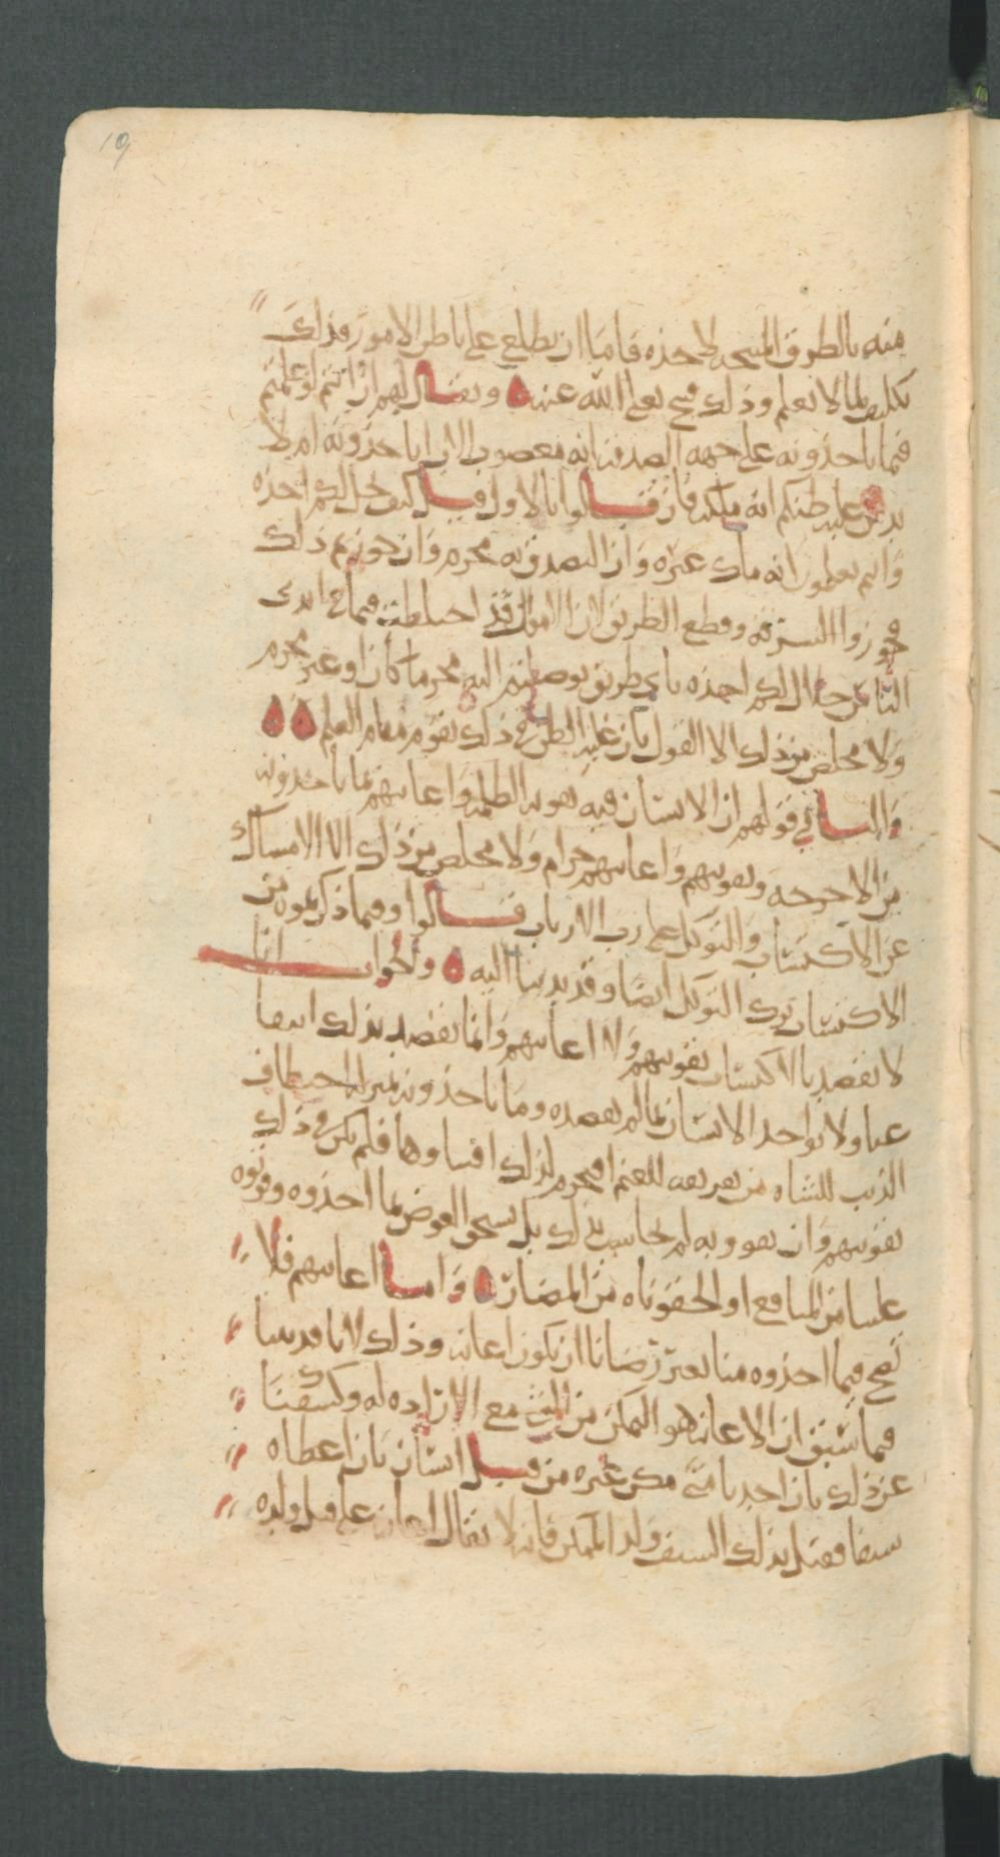 19
منه بالطرق المبيحه لاخذه فاما ان يطلع على باطن الامور فذلك
تكليف لما لا نعلم وذلك قبيح تعالى الله عنه ويقال لهم ان انتم لو علمتم
فيما تاخذونه على جهه الصدقه انه مغصوب الان اتاخذونه ام لا
بد من علمه ظنكم انه ملكه فان قالوا بالاول قيل كيف حل لكم اخذه
وانتم تعلمون انه ملك غيره وان التصدق به محرم وان جوزتم ذلك
فجوزوا السرقه وقطع الطريق لان الاموال قد اختلطت فما في ايدي
الناس حلال لكم اخذه باي طريق توصلتم اليه محرما كان او غير محرم
ولا مخلص من ذلك الا القول بان غلبه الظن في ذلك تقوم مقام العلم
والثاني قولهم ان الانسان فيه تقويه الظلمه واعانتهم بما ياخذونه
من الا وتقويتهم واعانتهم حرام ولا مخلص من ذلك الا الامساك
عن الاكتساب والتوكل على رب الارباب قالوا وفيما ذكرتموه من
الاكتساب ترك التوكل ايضا وقد ندبنا اليه والجواب انا
لا نقصد بالاكتساب تقويتهم ولا اعانتهم وانما نقصد بذلك انتفا
عنا ولا يواخذ الانسان بما لم يقصده وما ياخذونه بمنزله اختطاف
الذيب للشاه من يد ربه للغنم افيحرم لذلك اقتناوها فلم يكن في ذلك
تقويتهم وان تقووا به لم نحاسب بذلك بل نستحق العوض بما اخذوه وفوتوه
علينا من المنافع او الحقوناه من المضار واما اعانتهم فلا
تصح فيما اخذوه منا بغير رضانا ان تكون اعانه وذلك لانا قد بينا
فيما سبق ان الاعانه هو التمكين من الشي مع الاراده له وكشفنا
عن ذلك بان احدنا متى مكن غيره من قتل انسان بان اعطاه
سيفا فقتل بذلك السيف ولد الممكن فانه لا يقال اعان على قتل ولده